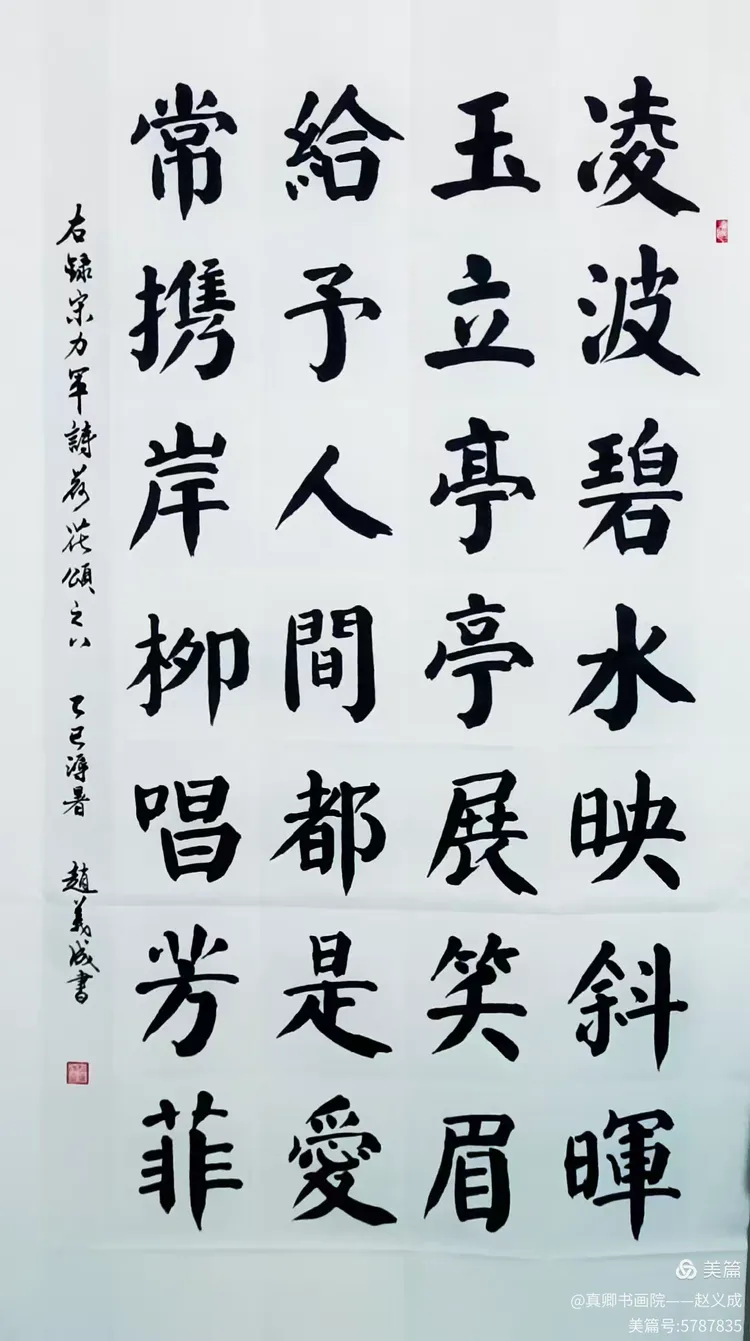 凌波碧水映斜暉
玉立亭亭展笑眉
給予人間都是愛
常携岸柳唱芳菲
右録宋力军詩荷花頌之八 乙巳溽暑 趙義成書
美篇
@真卿书画院——赵义成
美篇号:5787835